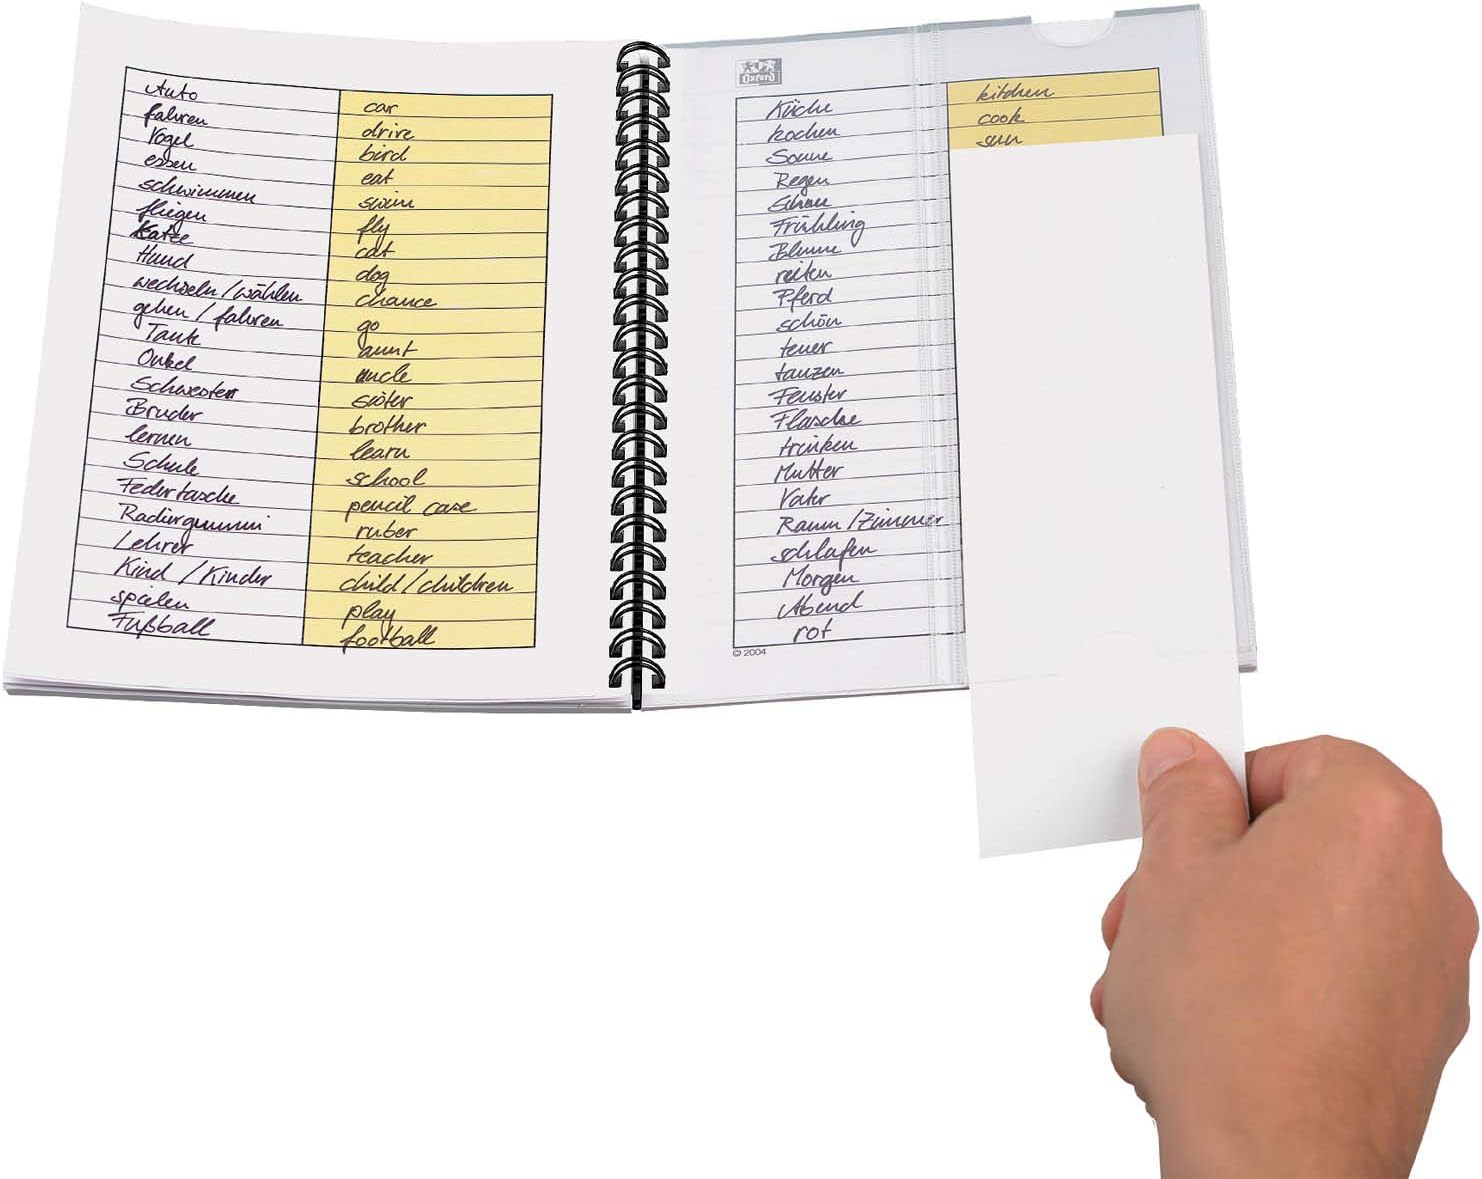 Auto car
fahren drive
Vogel bird
essen eat
schwimmen swim
fliegen fly
Katze cat
Hund dog
wechseln/wählen chance
gehen / fahren go
Tante aunt
Onkel uncle
Schwester sister
Bruder brother
lernen learn
Schule school
Federtasche pencil case
Radiergummi ruber
Lehrer teacher
Kind / Kinder child/children
spielen play
Fußball football
Oxford
Küche kitchen
kochen cook
Sonne sun
Regen
Frühling
Blume
reiten
Pferd
schön
teuer
tanzen
Fenster
Flasche
trinken
Mutter
Vater
Raum /Zimmer
schlafen
Morgen
Abend
rot
© 2004